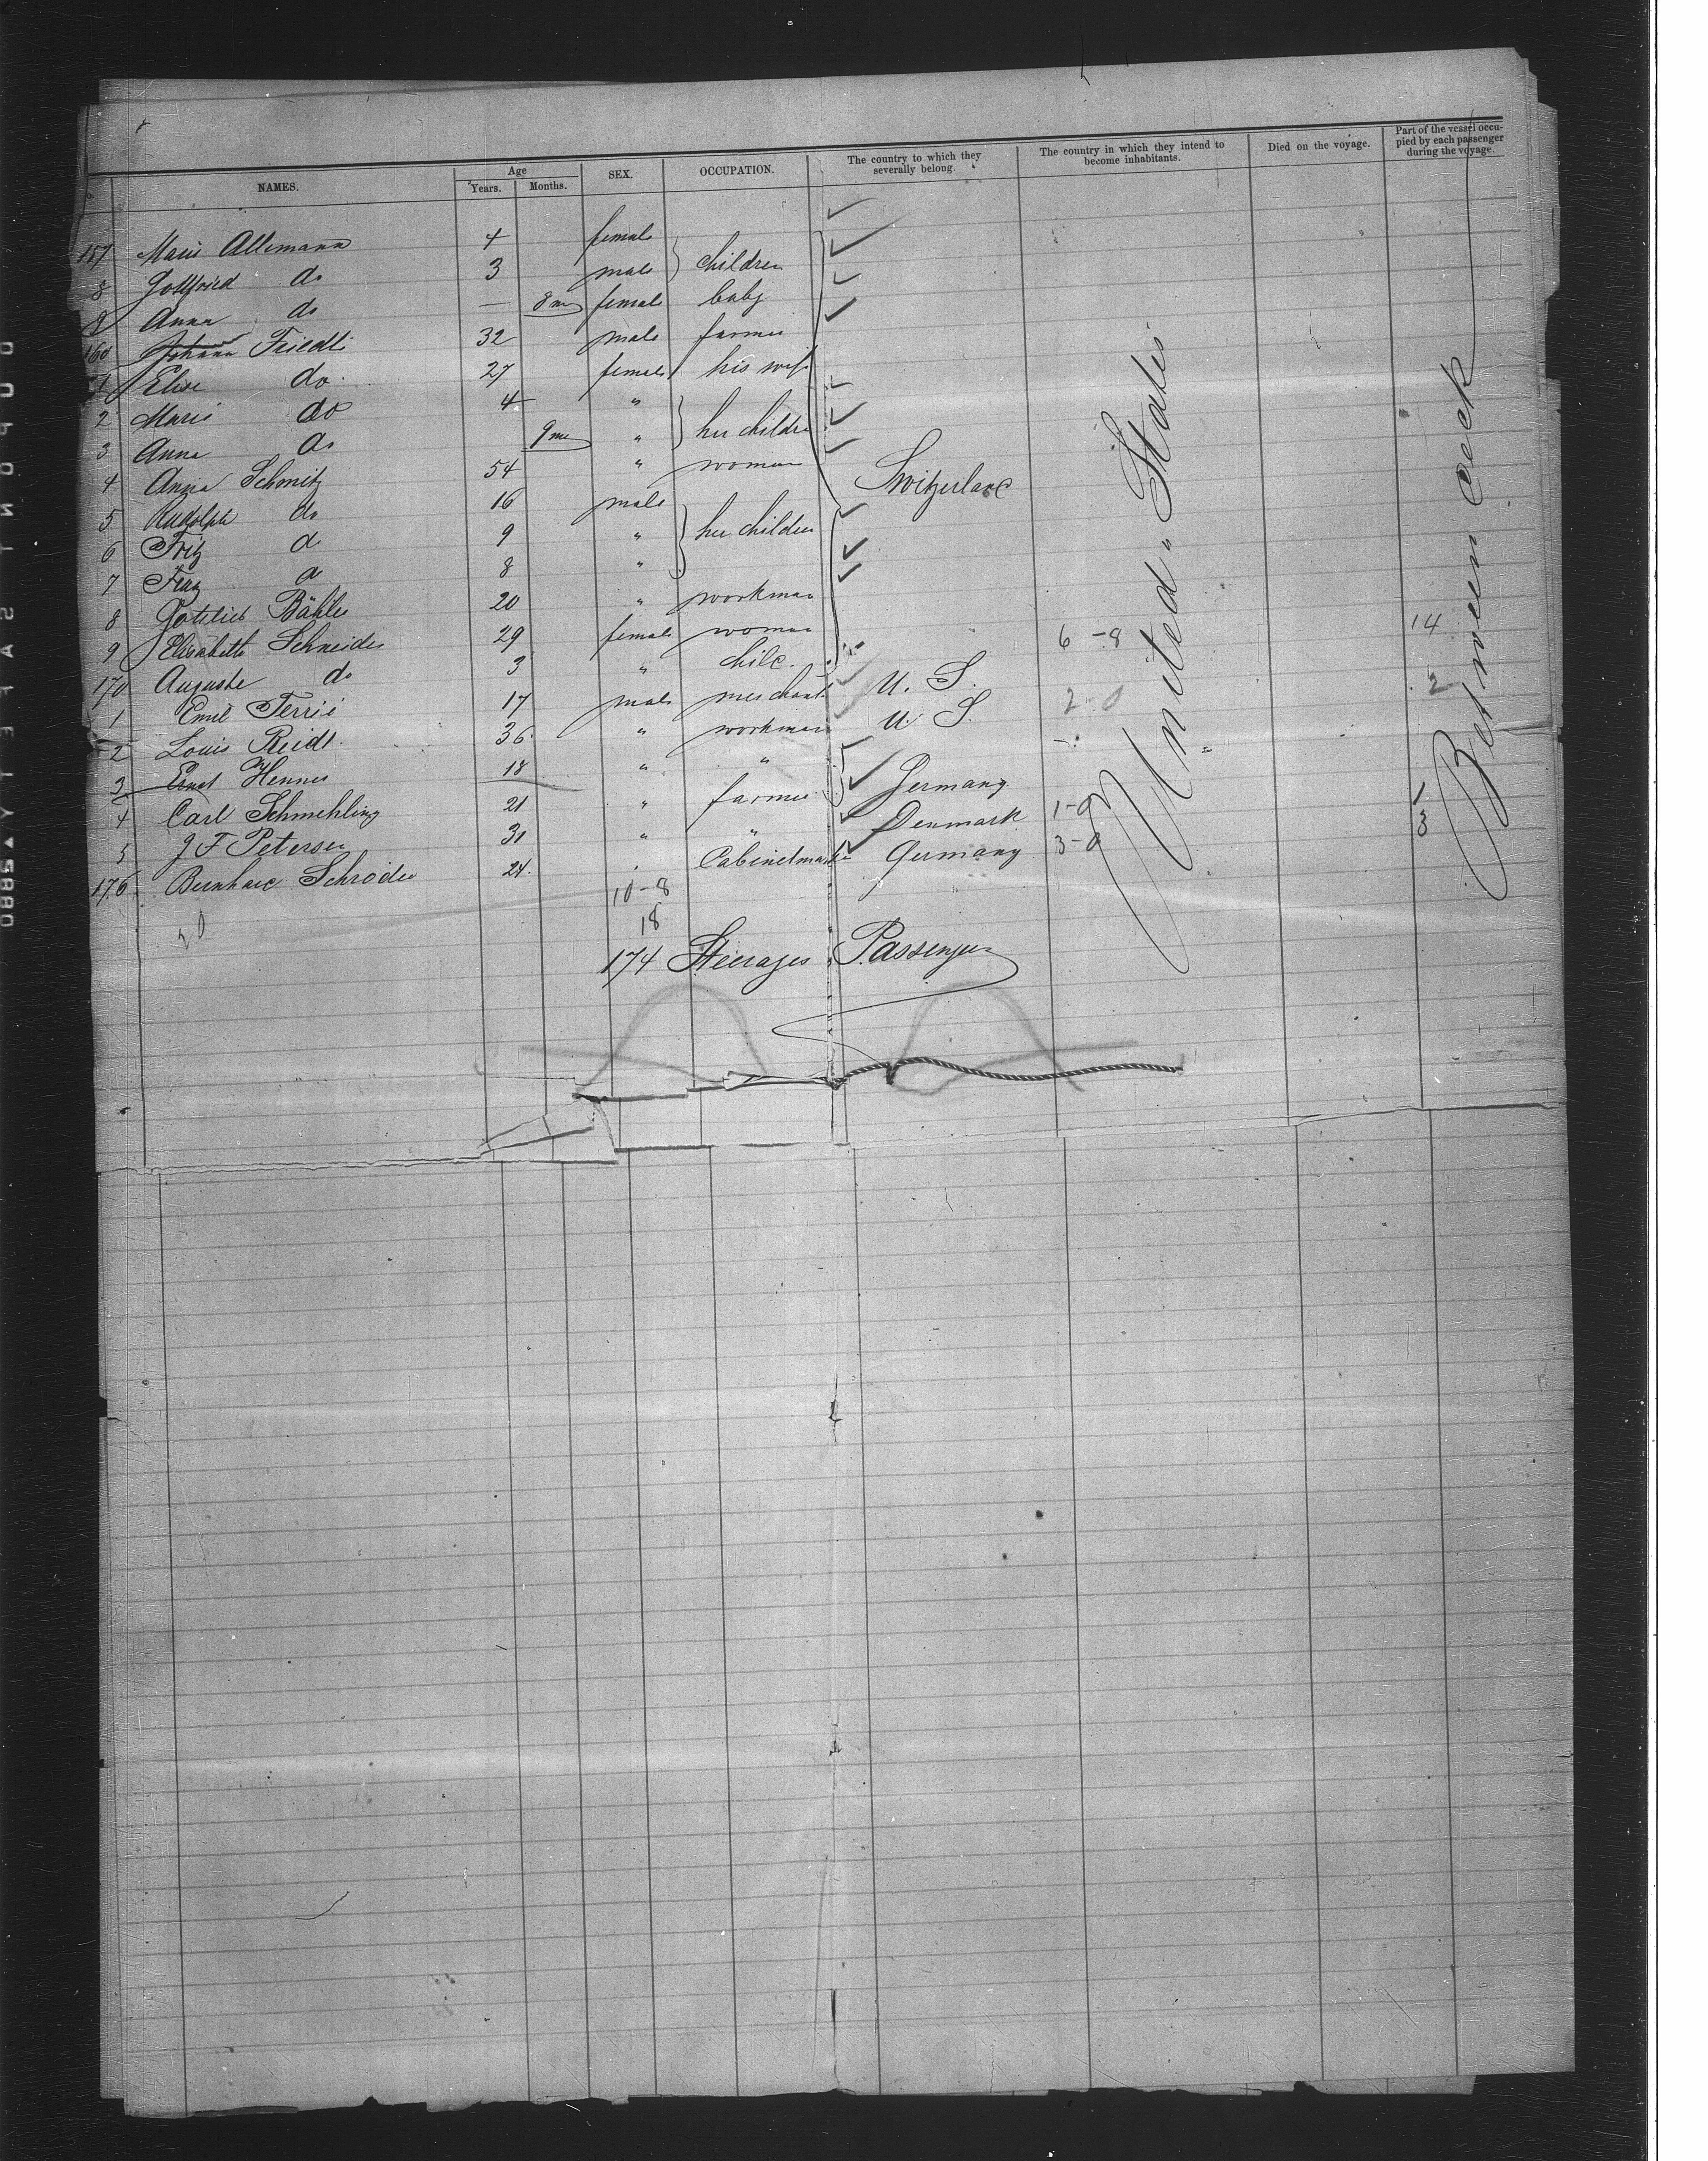 NAMES. Age Years. Months. SEX. OCCUPATION. The country to which they severally belong. The country in which they intend to become inhabitants. Died on the voyage. Part of the vessel occupied by each passenger during the voyage.
157 Marie Allemann 4 female
8 Gottfried do 3 male children
9 Anna do — 8 m female baby
160 Johann Friedli 32 male farmer
1 Elise do 27 female his wife
2 Marie do 4 "
3 Anna do 9 m " her children
4 Anna Schmitz 54 " woman Switzerland
5 Rudolph do 16 male
6 Fritz do 9 " her children
7 8 "
8 Gottlieb Bähler 20 " workman
9 Elisabeth Schneider 29 female woman 6-8 14
170 Auguste do 3 " child.
1 Emil 17 male merchant U. S. 2-0 2
2 Louis Reidt. 36. " workman U. S.
3 Ernst Hennes 18 " "
4 Carl Schmehling 21 " farmer Germany
5 J F Petersen 31 " " Denmark 1-0 1
176 Bernhard Schröder 24. " Cabinetmaker Germany 3-0 3
United " States
Between deck
20
10-8
18
174 Steerages Passengers